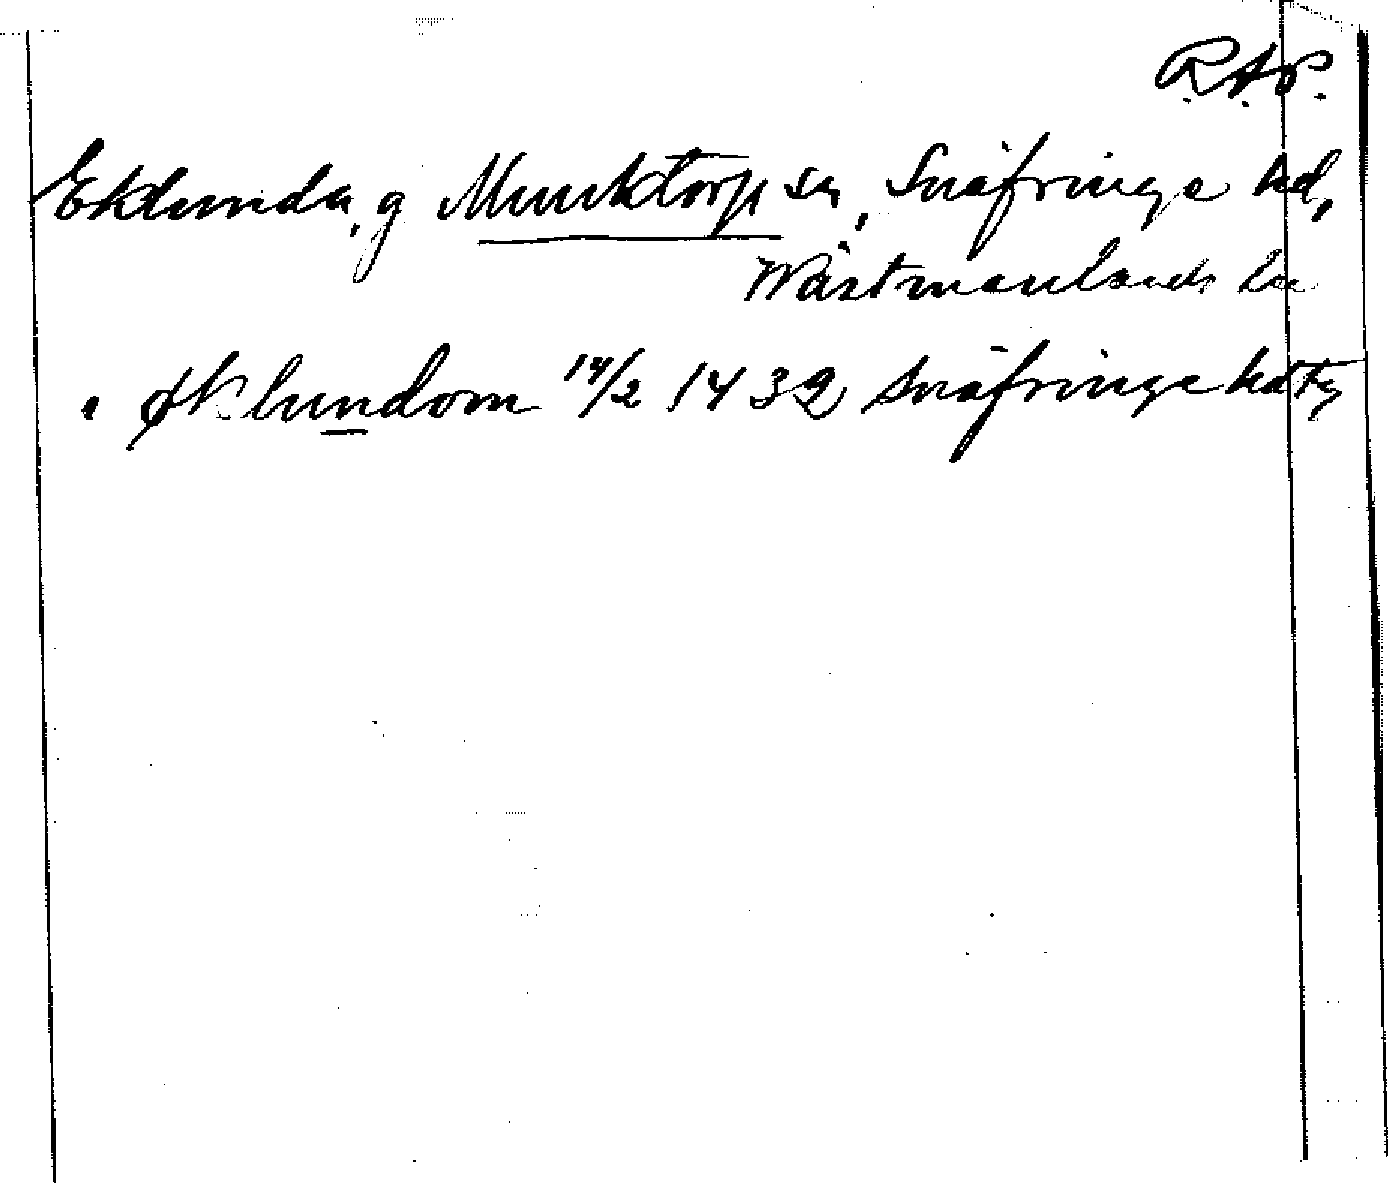 R.A.P.
Eklunda, g Munktorp sn, Snäfringe hd,
Wästmanlands län
i Øklundom 14/2 1432 Snäfringe hdtg